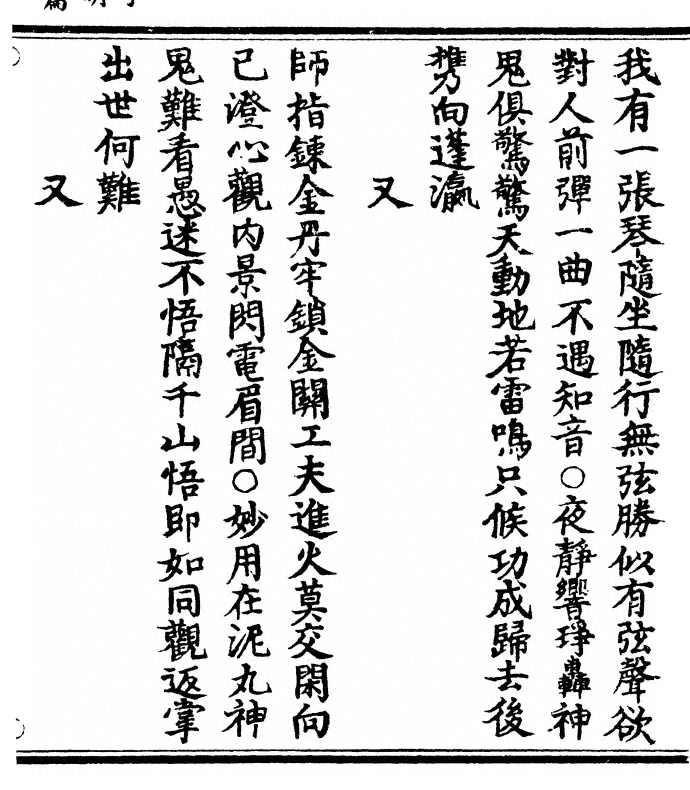 我有一張琴隨坐隨行無弦勝似有弦聲欲
對人前彈一曲不遇知音○夜靜響琤轟神
鬼俱驚驚天動地若雷鳴只候功成歸去後
携向蓬瀛
又
師指鍊金丹牢鎖金關工夫進火莫交閑向
已澄心觀內景閃電眉間○妙用在泥丸神
鬼難看愚迷不悟隔千山悟即如同觀返掌
出世何難
又